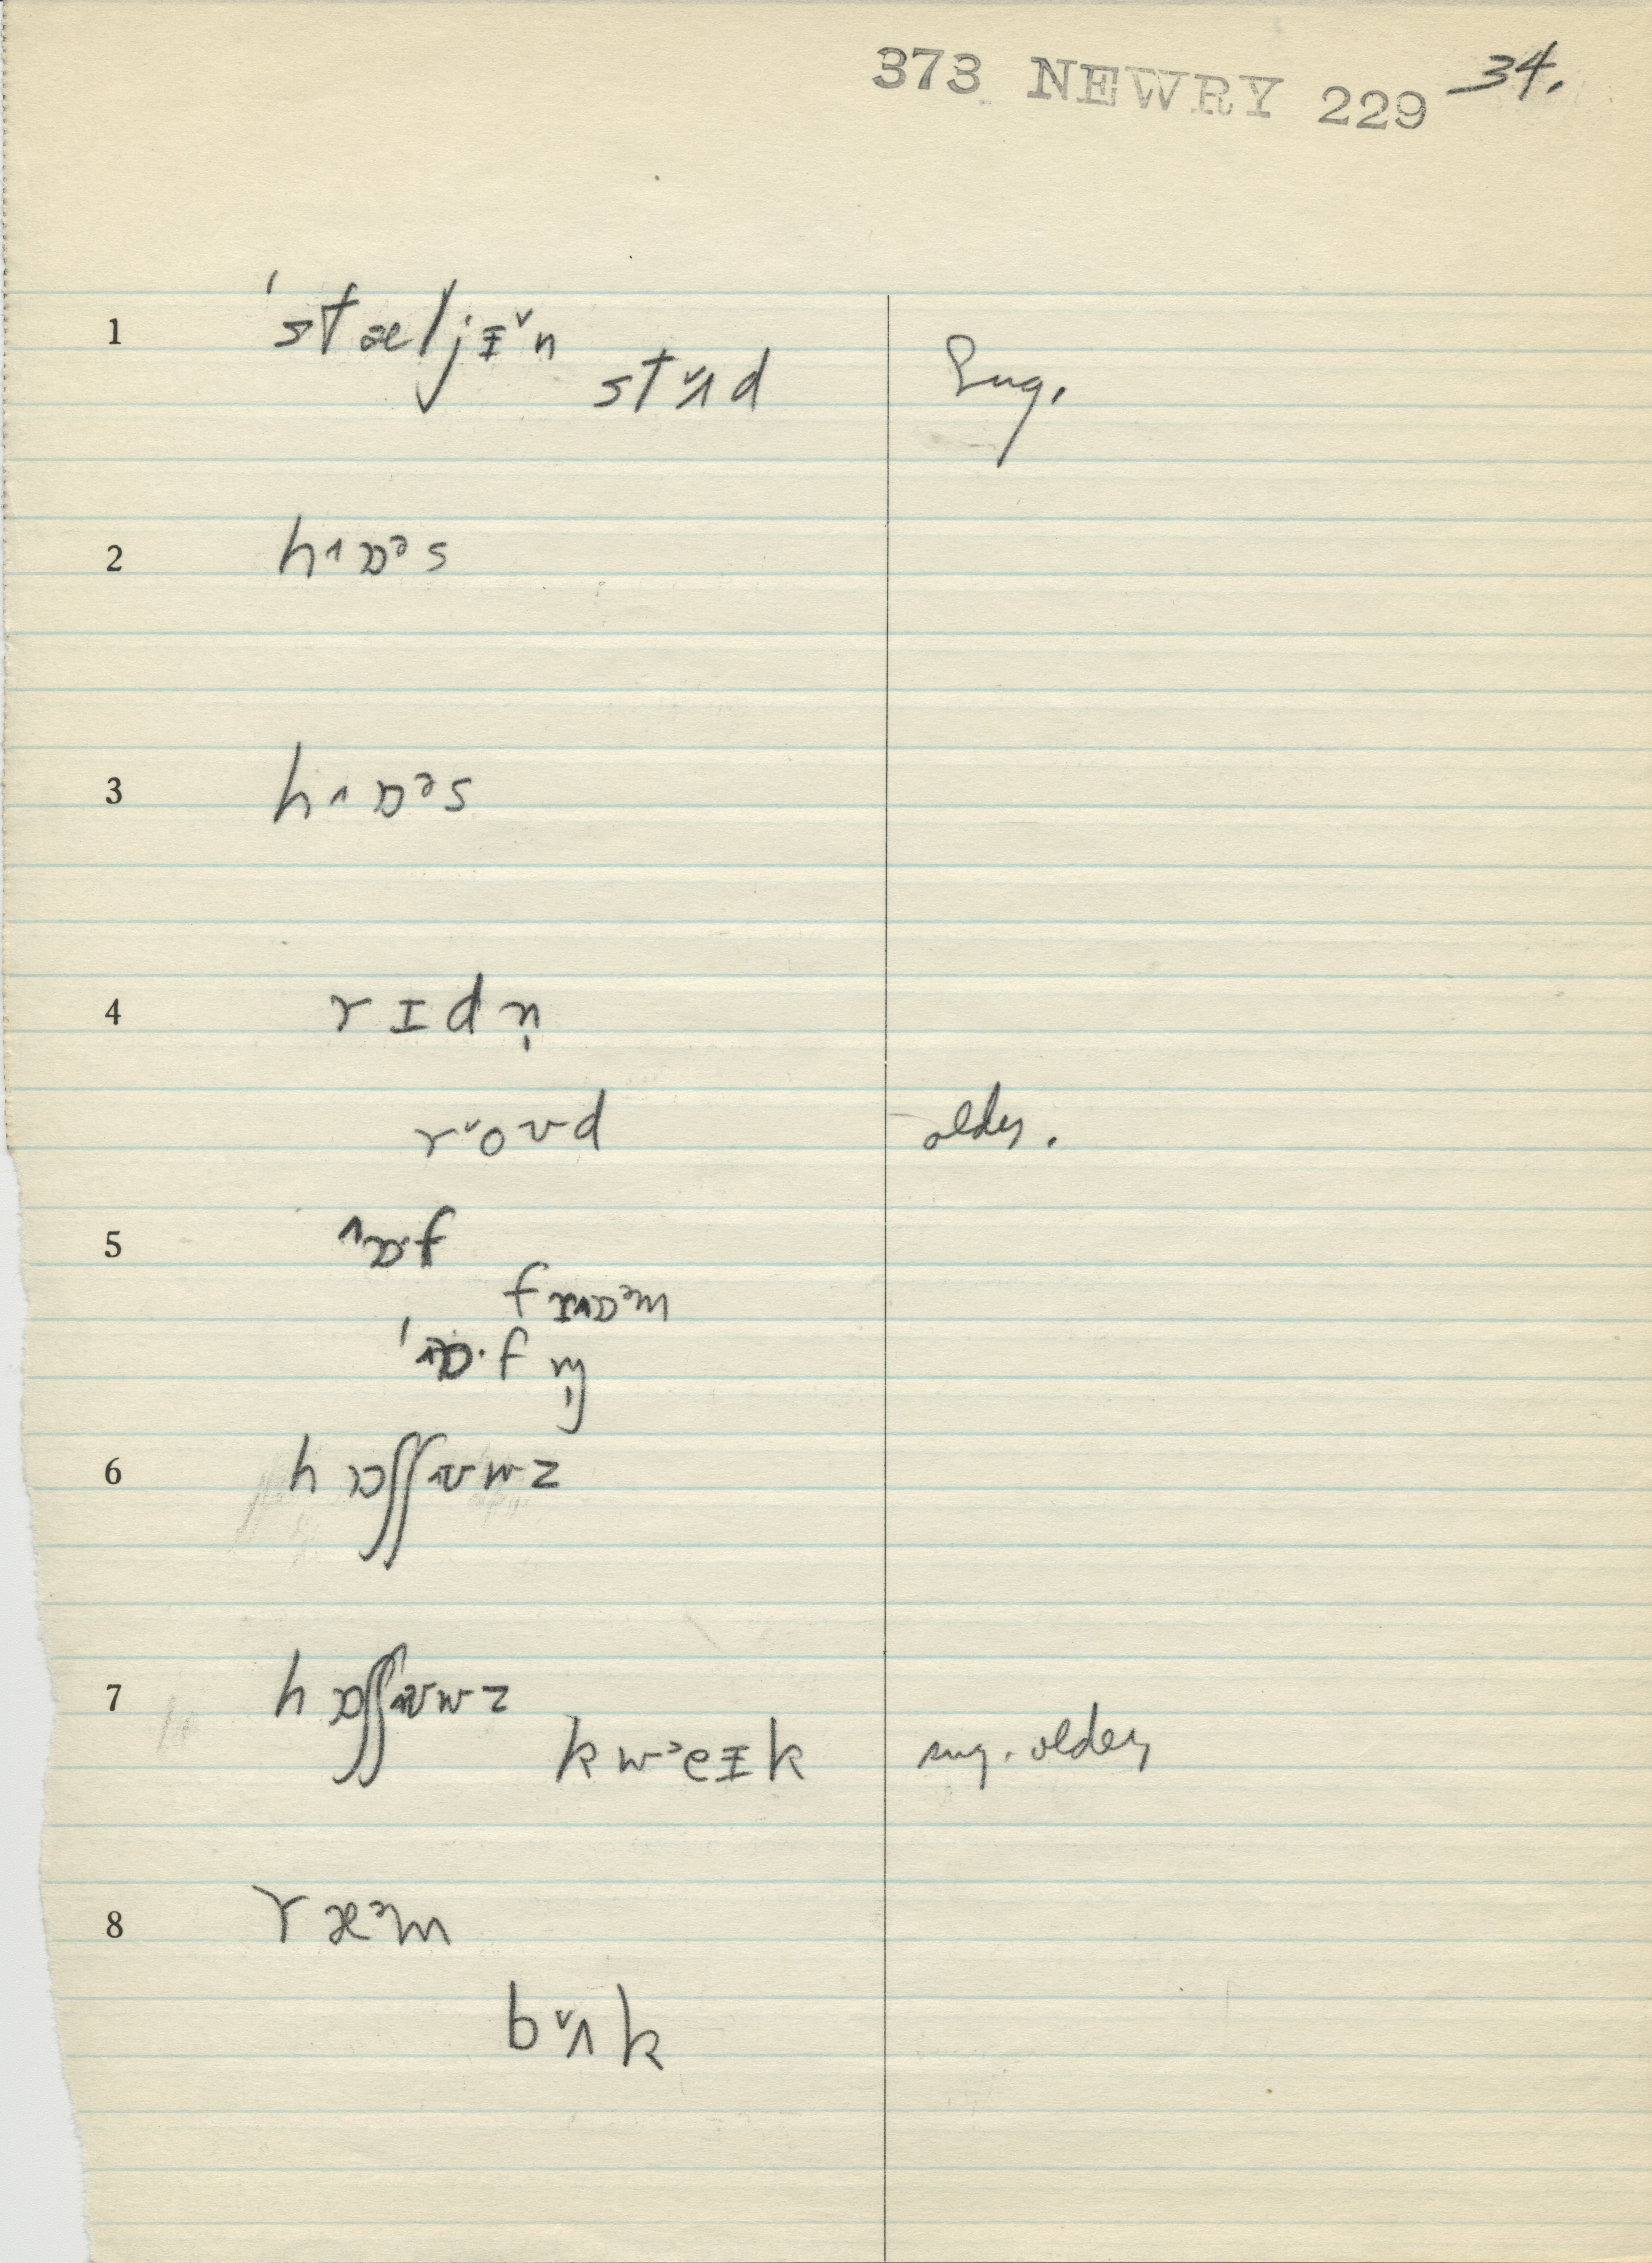 373 NEWRY 229 34.
1 ˈstæljɪ˅n
st˅ʌd Sug.
2 h˄ɒᵊs
3 h˄ɒᵊs
4 rɪdn̩
r˅oʊd older.
5 ˄ɒ·f
frɒᵊm
ˈ˄ɒ·fŋ̩
6 hɒʃʃʊwz
7 hɒʃʃʊwz
kw˃eɪk sug. older
8 ræᵊm
b˅ʌk